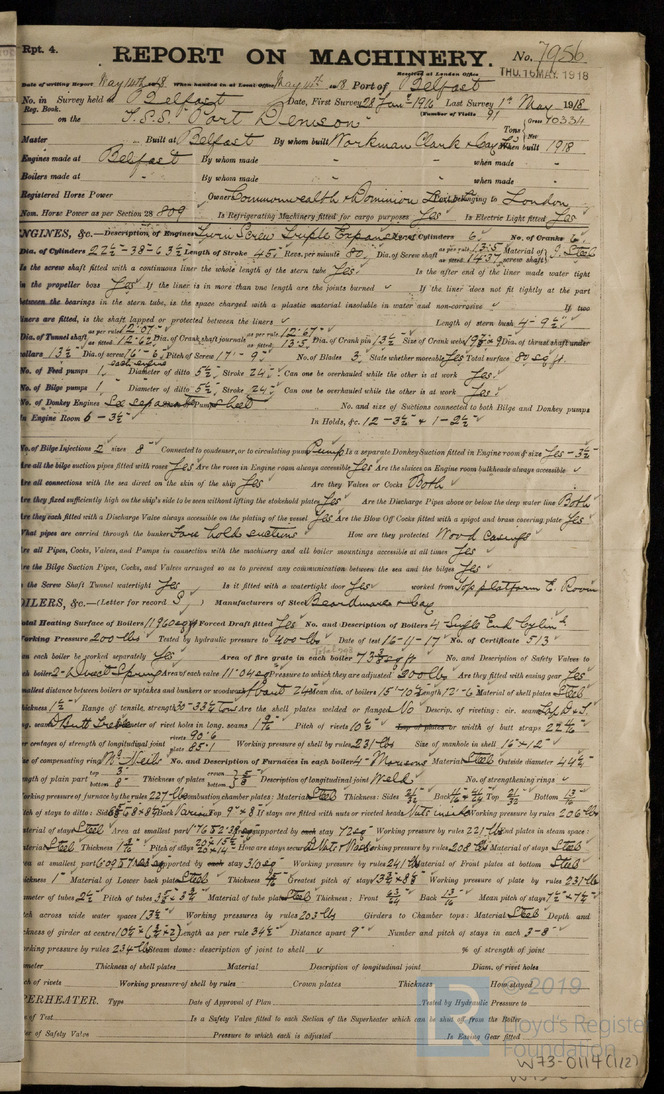 Rpt. 4.
REPORT ON MACHINERY.
No. 7956
Received at London Office THU. 16 MAY. 1918
Date of writing Report May 14th 1918 When handed in at Local Office May 14th 1918 Port of Belfast
No. in Survey held at Belfast Date, First Survey 28 Jan 1916 Last Survey 1st May 1918
Reg. Book. (Number of Visits 91
on the T.S.S. "Port Denison" Tons Gross 10334
Master Built at Belfast By whom built Workman Clark & Co When built 1918
Engines made at Belfast By whom made " when made "
Boilers made at " By whom made " when made "
Registered Horse Power Owners Commonwealth & Dominion Line belonging to London
Nom. Horse Power as per Section 28 809 Is Refrigerating Machinery fitted for cargo purposes Yes Is Electric Light fitted Yes
ENGINES, &c.—Description of Engines Twin Screw Triple Expansion No. of Cylinders 6 No. of Cranks 6
Dia. of Cylinders 22½-38-63½ Length of Stroke 45 Revs. per minute 80 Dia. of Screw shaft as per rule 13.5 as fitted 14.37 Material of screw shaft Steel
Is the screw shaft fitted with a continuous liner the whole length of the stern tube Yes Is the after end of the liner made water tight
in the propeller boss Yes If the liner is in more than one length are the joints burned ✓ If the liner does not fit tightly at the part
between the bearings in the stern tube, is the space charged with a plastic material insoluble in water and non-corrosive ✓ If two
liners are fitted, is the shaft lapped or protected between the liners ✓ Length of stern bush 4-9½
Dia. of Tunnel shaft as per rule 12.07 as fitted 12.62 Dia. of Crank shaft journals as per rule 12.67 as fitted 13.5 Dia. of Crank pin 13½ Size of Crank webs Dia. of thrust shaft under
collars 13½ Dia. of screw 16-6 Pitch of Screw 17-9 No. of Blades 3 State whether moveable Yes Total surface 80 sq ft
No. of Feed pumps 1 each engine Diameter of ditto 5½ Stroke 24 Can one be overhauled while the other is at work Yes
No. of Bilge pumps 1 Diameter of ditto 5½ Stroke 24 Can one be overhauled while the other is at work Yes
No. of Donkey Engines Six separate Pumps sheet No. and size of Suctions connected to both Bilge and Donkey pumps
In Engine Room 6-3½ In Holds, &c. 12-3½ & 1-2½
No. of Bilge Injections 2 sizes 8 Connected to condenser, or to circulating pump Pump Is a separate Donkey Suction fitted in Engine room & size Yes-3½
Are all the bilge suction pipes fitted with roses Yes Are the roses in Engine room always accessible Yes Are the sluices on Engine room bulkheads always accessible ✓
Are all connections with the sea direct on the skin of the ship Yes Are they Valves or Cocks Both
Are they fixed sufficiently high on the ship's side to be seen without lifting the stokehold plates Yes Are the Discharge Pipes above or below the deep water line Both
Are they each fitted with a Discharge Valve always accessible on the plating of the vessel Yes Are the Blow Off Cocks fitted with a spigot and brass covering plate Yes
What pipes are carried through the bunkers Fore hold suctions How are they protected Wood Casings
Are all Pipes, Cocks, Valves, and Pumps in connection with the machinery and all boiler mountings accessible at all times Yes
Are the Bilge Suction Pipes, Cocks, and Valves arranged so as to prevent any communication between the sea and the bilges Yes
Is the Screw Shaft Tunnel watertight Yes Is it fitted with a watertight door Yes worked from Top platform E. Room
BOILERS, &c.—(Letter for record S) Manufacturers of Steel Beardmore & Co
Total Heating Surface of Boilers 11960 sq ft Forced Draft fitted Yes No. and Description of Boilers 4 Single End Cylin
Working Pressure 200 lbs Tested by hydraulic pressure to 400 lbs Date of test 16-11-17 No. of Certificate 513
Can each boiler be worked separately Yes Area of fire grate in each boiler 73 sq ft No. and Description of Safety Valves to
each boiler 2 Direct Spring Area of each valve 11.04 sq Pressure to which they are adjusted 200 lbs Are they fitted with easing gear Yes
Smallest distance between boilers or uptakes and bunkers or woodwork about 24 Mean dia. of boilers 15-10 Length 12-6 Material of shell plates Steel
Thickness 1½ Range of tensile strength 30-33½ tons Are the shell plates welded or flanged No Descrip. of riveting: cir. seams
long. seams D Butt Treble Diameter of rivet holes in long. seams 1 9/16 Pitch of rivets 10½ Lap of plates or width of butt straps
Per centages of strength of longitudinal joint rivets 90.6 plate 85.1 Working pressure of shell by rules 231 lbs Size of manhole in shell 16 × 12
Size of compensating ring McNeils No. and Description of Furnaces in each boiler 4-Morisons Material Steel Outside diameter 44½
Length of plain part top bottom Thickness of plates crown bottom 5/8 Description of longitudinal joint Weld No. of strengthening rings ✓
Working pressure of furnace by the rules 227 lbs Combustion chamber plates: Material Steel Thickness: Sides 21/32 Back Top 21/32 Bottom 13/16
Pitch of stays to ditto: Sides Back Various Top 9×8 If stays are fitted with nuts or riveted heads Nuts inside Working pressure by rules 206 lbs
Material of stays Steel Area at smallest part supported by each stay 72 sq Working pressure by rules 221 lbs End plates in steam space:
Material Steel Thickness Pitch of stays How are stays secured D Nuts Wash Working pressure by rules 208 lbs Material of stays Steel
Area at smallest part supported by each stay 310 sq Working pressure by rules 241 lbs Material of Front plates at bottom Steel
Thickness 1 Material of Lower back plate Steel Thickness Greatest pitch of stays Working pressure of plate by rules 231 lbs
Diameter of tubes 2½ Pitch of tubes Material of tube plates Steel Thickness: Front Back 13/16 Mean pitch of stays
Pitch across wide water spaces 13½ Working pressures by rules 203 lbs Girders to Chamber tops: Material Steel Depth and
thickness of girder at centre Length as per rule 34½ Distance apart 9 Number and pitch of stays in each 3-8
Working pressure by rules 234 lbs Steam dome: description of joint to shell ✓ % of strength of joint
Diameter Thickness of shell plates Material Description of longitudinal joint Diam. of rivet holes
Pitch of rivets Working pressure of shell by rules Crown plates Thickness How stayed
SUPERHEATER. Type Date of Approval of Plan Tested by Hydraulic Pressure to
Date of Test Is a Safety Valve fitted to each Section of the Superheater which can be shut off from the Boiler
Diameter of Safety Valve Pressure to which each is adjusted Is Easing Gear fitted
© 2019
Lloyd's Register
Foundation
W73-0114(1/2)